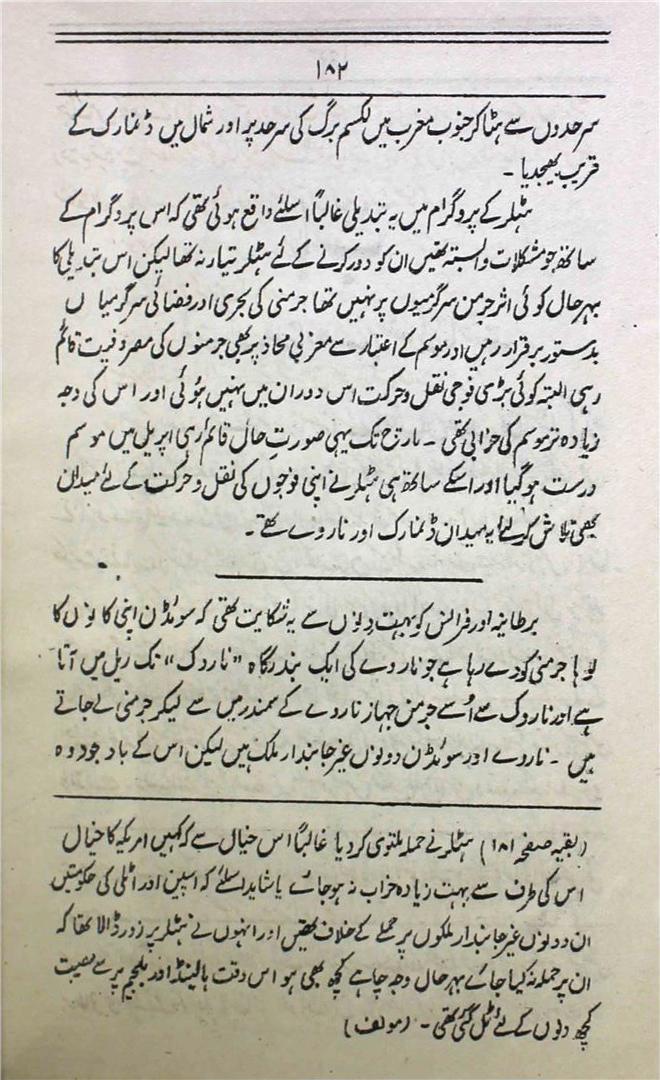 ۱۸۲
سرحدوں سے ہٹا کر جنوب مغرب میں لکسم برگ کی سرحد پر اور شمال میں ڈنمارک کے
قریب بھیجدیا۔
ہٹلر کے پروگرام میں یہ تبدیلی غالباً اسلئے واقع ہوئی تھی کہ اس پروگرام کے
ساتھ جو مشکلات وابستہ تھیں ان کو دور کرنے کے لئے ہٹلر تیار نہ تھا لیکن اس تبدیلی کا
بہر حال کوئی اثر جرمن سرگرمیوں پر نہیں تھا جرمنی کی بحری اور فضائی سرگرمیا ں
بدستور برقرار رہیں اور موسم کے اعتبار سے مغربی محاذ پر بھی جرمنوں کی مصروفیت قائم
رہی البتہ کوئی بڑی فوجی نقل و حرکت اس دوران میں نہیں ہوئی اور اس کی وجہ
زیادہ تر موسم کی خرابی تھی۔ مارچ تک یہی صورتِ حال قائم رہی اپریل میں موسم
درست ہو گیا اور اسکے ساتھ ہی ہٹلر نے اپنی فوجوں کی نقل و حرکت کے لئے میدان
بھی تلاش کر لئے یہ میدان ڈنمارک اور ناروے تھے۔
برطانیہ اور فرانس کو بہت دنوں سے یہ شکایت تھی کہ سوئڈن اپنی کانوں کا
لوہا جرمنی کو دے رہا ہے جو ناروے کی ایک بندرگاہ "ناروک" تک ریل میں آتا
ہے اور ناروک سے اُسے جرمن جہاز ناروے کے سمندر میں سے لیکر جرمنی لے جاتے
ہیں۔ ناروے اور سوئڈن دونوں غیر جانبدار ملک ہیں لیکن اس کے باوجود وہ
(بقیہ صفحہ ۱۸۱) ہٹلر نے حملہ ملتوی کر دیا غالباً اس خیال سے کہ کہیں امریکہ کا خیال
اس کی طرف سے بہت زیادہ خراب نہ ہو جائے یا شاید اسلئے کہ اسپین اور اٹلی کی حکومتیں
ان دونوں غیر جانبدار ملکوں پر حملے کے خلاف تھیں اور انہوں نے ہٹلر پر زور ڈالا تھا کہ
ان پر حملہ نہ کیا جائے بہر حال وجہ چاہے کچھ بھی ہو اس وقت ہالینڈ اور بلجیم پر سے مصیبت
کچھ دنوں کے لئے ٹل گئی تھی۔ (مولف)